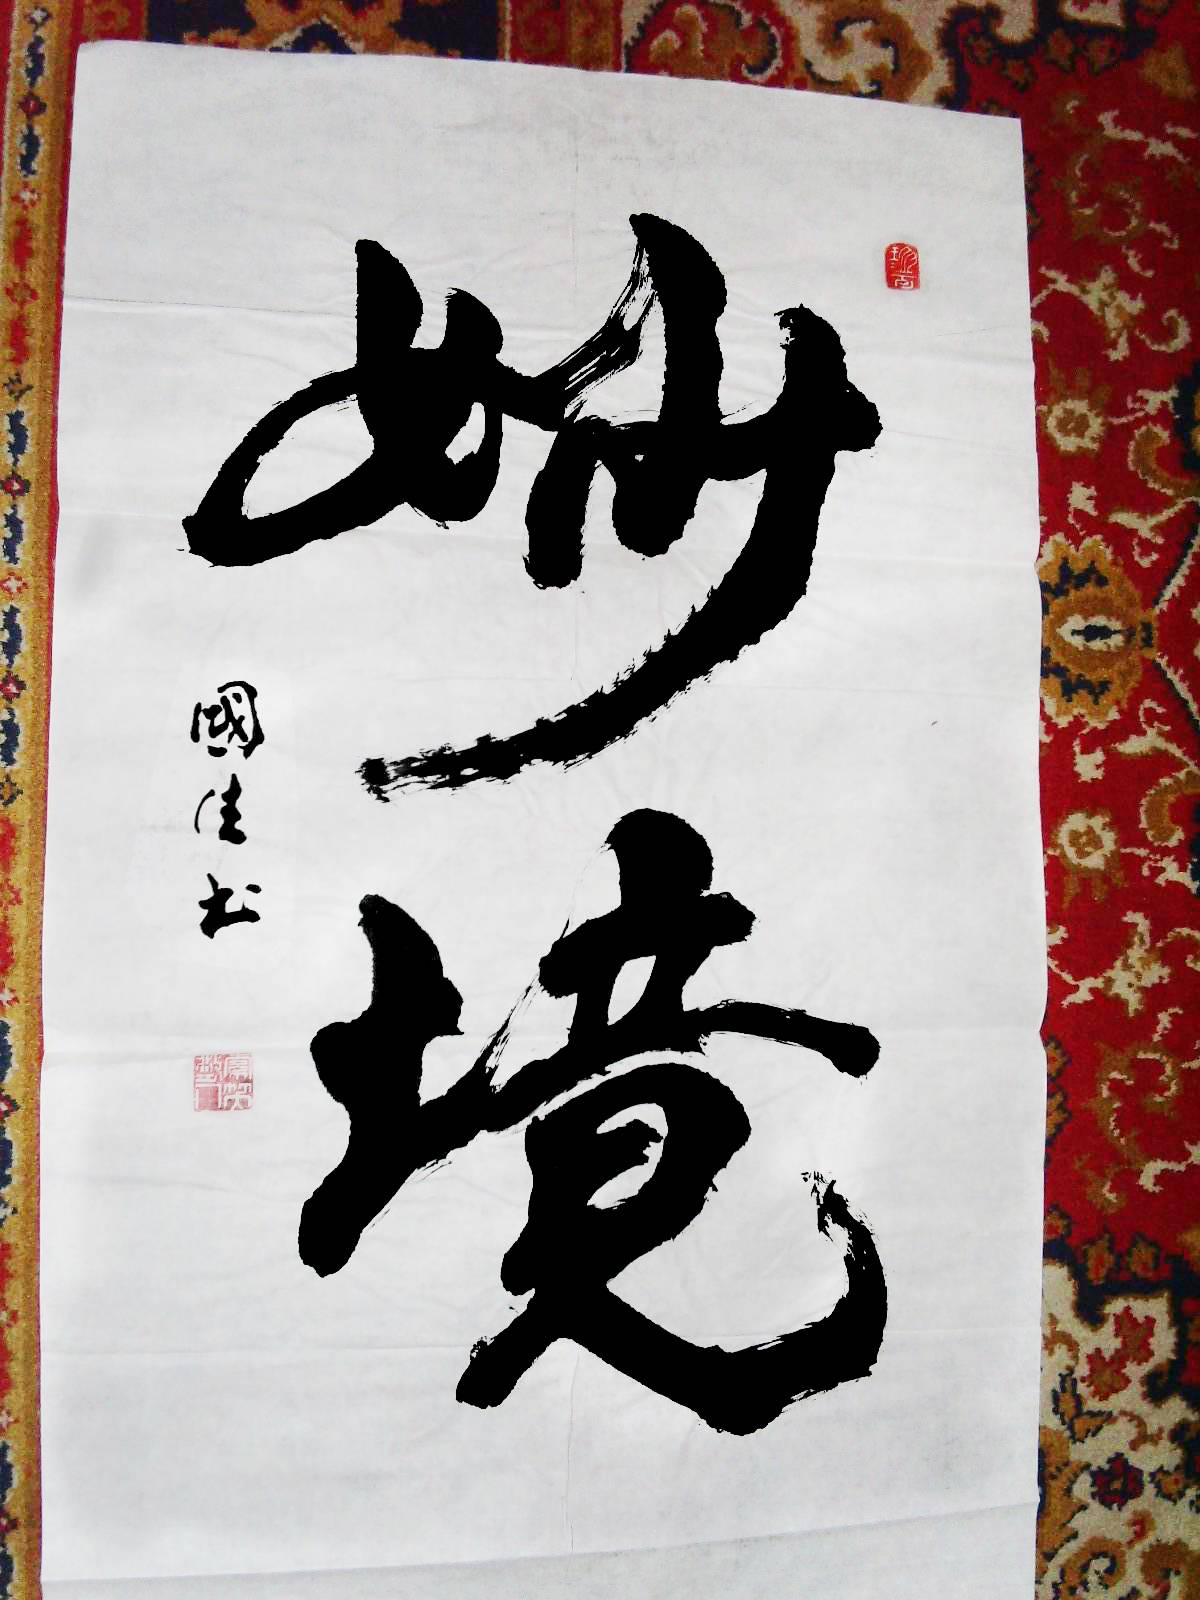 妙境
國佳书